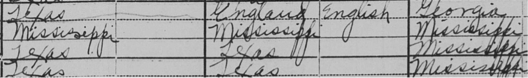 Texas England English Georgia
Mississippi Mississippi Mississippi
Texas Texas Mississippi
Texas Texas Mississippi